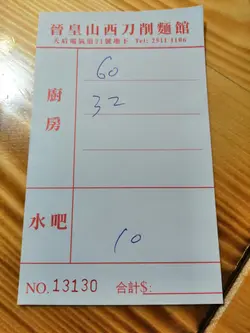 晉皇山西刀削麵館
天后電氣道21號地下 Tel: 2511 1186
60
廚
32
房
水吧
10
NO. 13130 合計$: